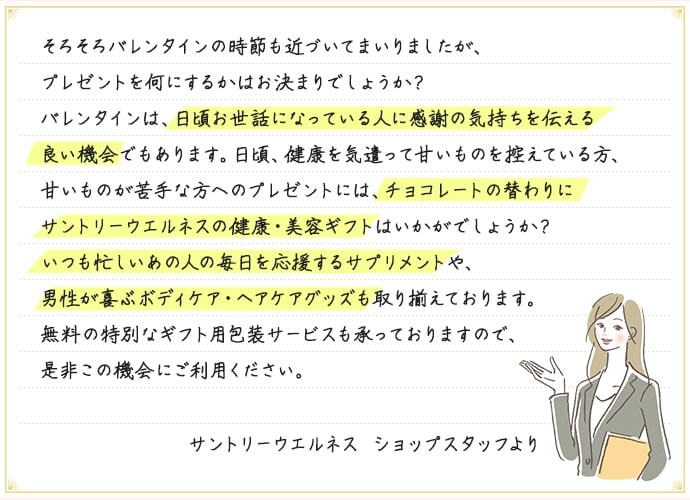 そろそろバレンタインの時節も近づいてまいりましたが、
プレゼントを何にするかはお決まりでしょうか？
バレンタインは、日頃お世話になっている人に感謝の気持ちを伝える
良い機会でもあります。日頃、健康を気遣って甘いものを控えている方、
甘いものが苦手な方へのプレゼントには、チョコレートの替わりに
サントリーウエルネスの健康・美容ギフトはいかがでしょうか？
いつも忙しいあの人の毎日を応援するサプリメントや、
男性が喜ぶボディケア・ヘアケアグッズも取り揃えております。
無料の特別なギフト用包装サービスも承っておりますので、
是非この機会にご利用ください。
サントリーウエルネス　ショップスタッフより